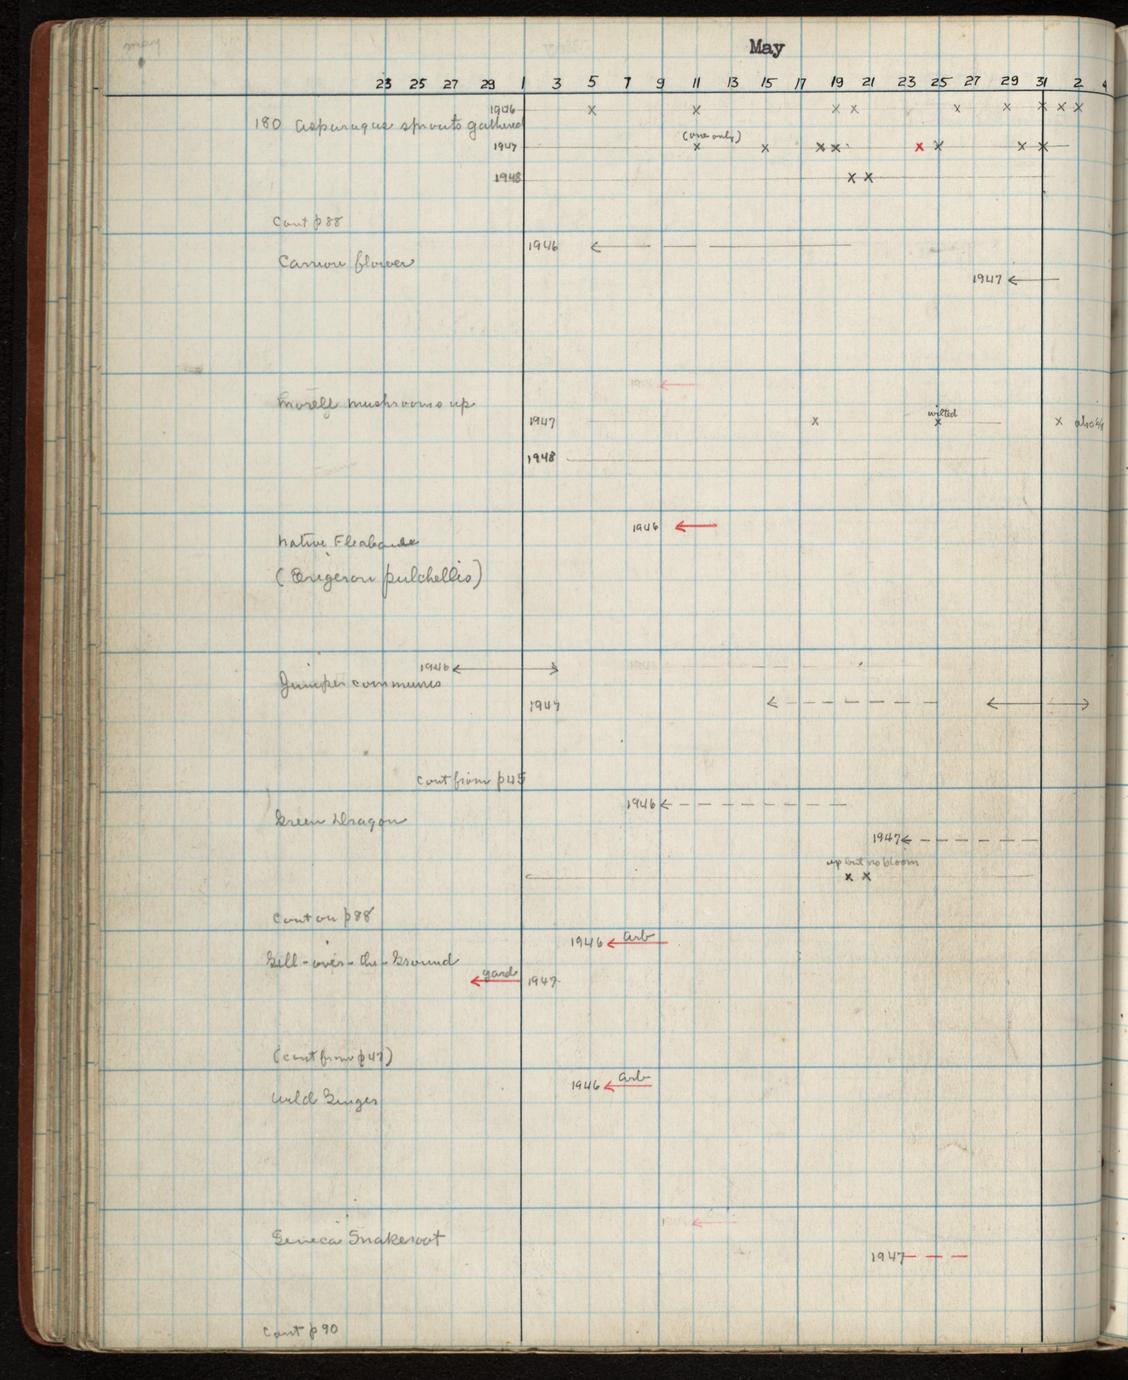 may
May
23 25 27 29 1 3 5 7 9 11 13 15 17 19 21 23 25 27 29 31 2 4
1946 x x x x x x x x x
180 Asparagus sprouts gathered
(one only)
1947 x x x x x x x x
1948 x x
Cont p88
1946
Carrion flower
1947
Morell mushrooms up
wilted
1947 x x x also
1948
1946
Native Fleabane
(Erigeron pulchellis)
1946
Juniper communis
1947
cont from p45
1946
Green Dragon
1947
up but no bloom
x x
Cont on p88
1946 arb
Gill-over-the-Ground
gard 1947
(cont from p47)
1946 arb
Wild Ginger
Seneca Snakeroot
1947
Cont p90